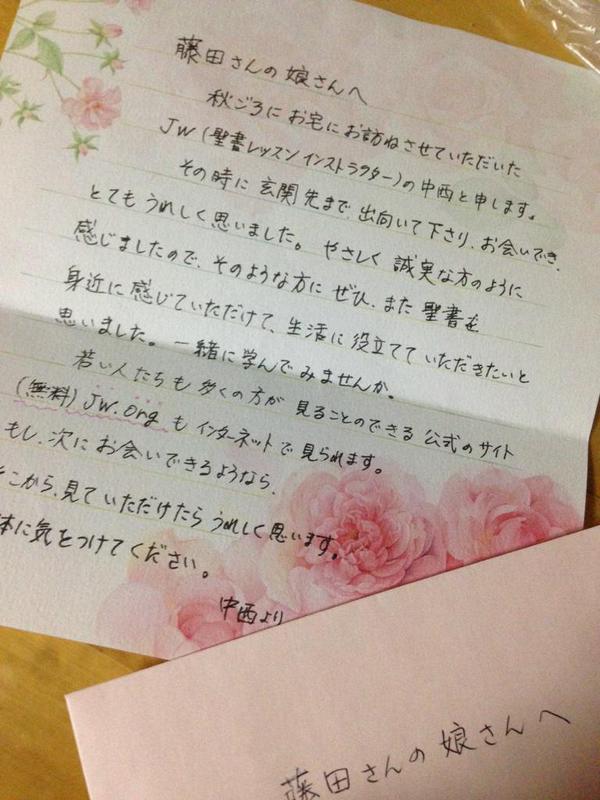 藤田さんの娘さんへ
秋ごろにお宅にお訪ねさせていただいた
JW(聖書レッスンインストラクター)の中西と申します。
その時に玄関先まで、出向いて下さり、お会いでき、
とてもうれしく思いました。やさしく誠実な方のように
感じましたので、そのような方にぜひ、また聖書を
身近に感じていただけて、生活に役立てていただきたいと
思いました。一緒に学んでみませんか。
若い人たちも多くの方が見ることのできる公式のサイト
(無料)JW.orgもインターネットで見られます。
もし、次にお会いできるようなら、
そこから、見ていただけたらうれしく思います。
体に気をつけてください。
中西より
藤田さんの娘さんへ